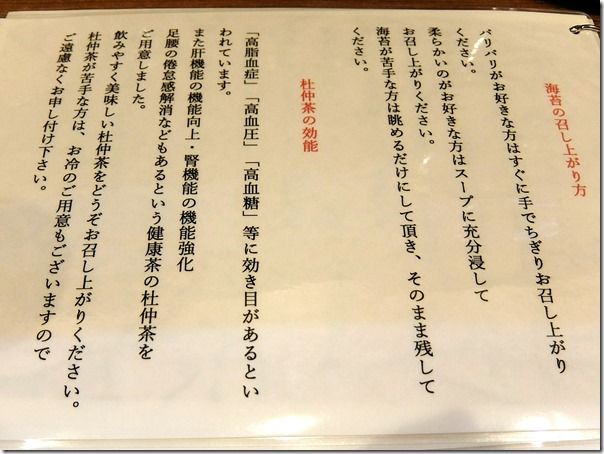 海苔の召し上がり方
パリパリがお好きな方はすぐに手でちぎりお召し上がり
ください。
柔らかいのがお好きな方はスープに充分浸して
お召し上がりください。
海苔が苦手な方は眺めるだけにして頂き、そのまま残して
ください。
杜仲茶の効能
「高脂血症」「高血圧」「高血糖」等に効き目があるとい
われています。
また肝機能の機能向上・腎機能の機能強化
足腰の倦怠感解消などもあるという健康茶の杜仲茶を
ご用意しました。
飲みやすく美味しい杜仲茶をどうぞお召し上がりください。
杜仲茶が苦手な方は、お冷のご用意もございますので
ご遠慮なくお申し付け下さい。